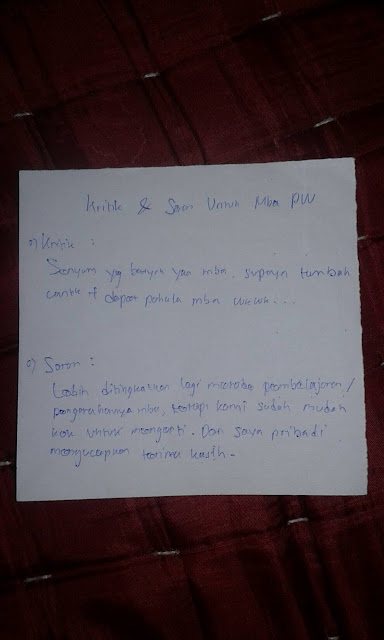 Kritik & Saran Untuk Mba PW
o) Kritik :
Senyum yg banyak yaa mba, supaya tambah
cantik + dapat pahala mba wkwk...
o) Saran :
Lebih ditingkatkan lagi metode pembelajaran/
pengarahannya mba, tetapi kami sudah mudah
kok untuk mengerti. Dan saya pribadi
mengucapkan terima kasih.